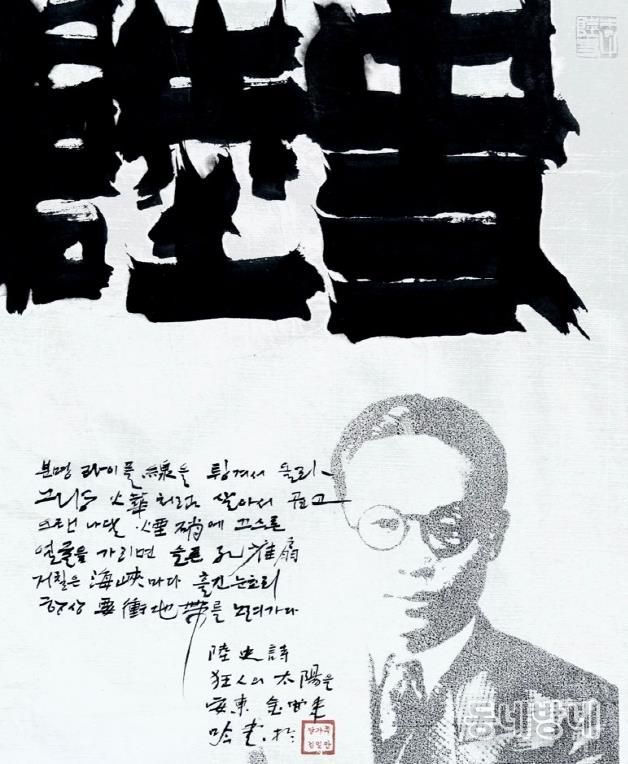 분명 라이플 線을 튕겨서 올라
그냥 火華처럼 살아서 곱고
오랜 나달 煙硝에 끄스른
얼굴을 가리면 슬픈 孔雀扇
거칠은 海峽마다 흘긴 눈초리
항상 要衝地帶를 노려가다
陸史詩
狂人의 太陽을
安東 金
동네방네